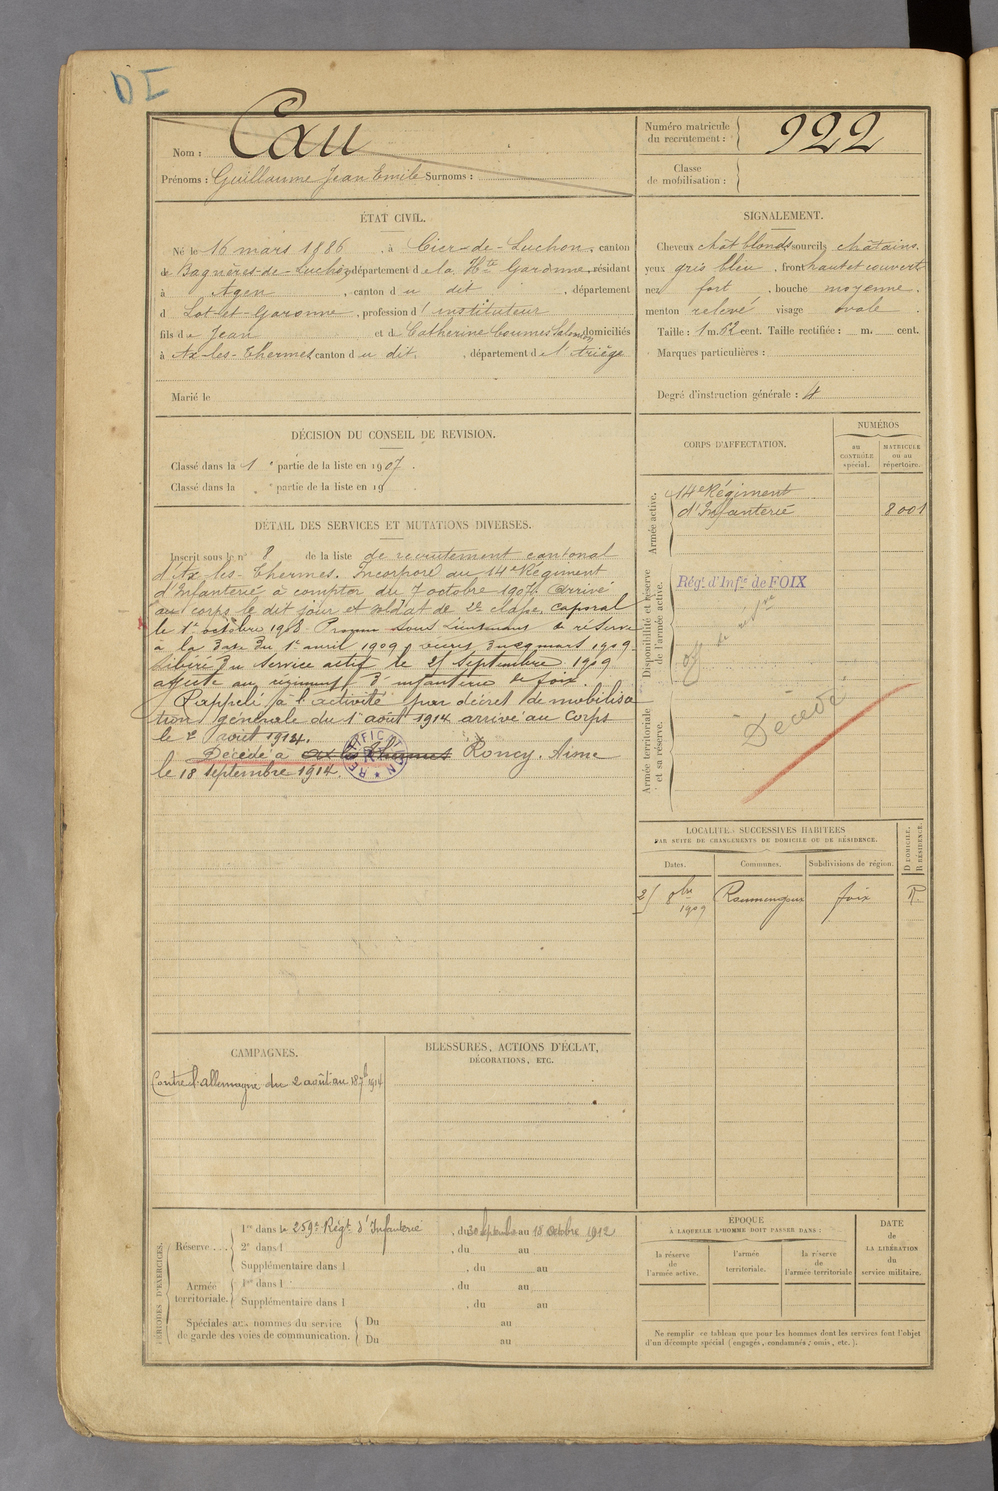 DI
Nom : Cau
Prénoms : Guillaume Jean Emile Surnoms :
Numéro matricule
du recrutement : 922
Classe
de mobilisation :
ÉTAT CIVIL.
Né le 16 mars 1886, à Cier-de-Luchon, canton
de Bagnères-de-Luchon, département de la Hte Garonne, résidant
à Agen, canton du dit, département
d Lot-et-Garonne, profession d'instituteur
fils de Jean et de Catherine Coumes domiciliés
à Ax-les-Thermes canton du dit, département de l'Ariège
Marié le
SIGNALEMENT.
Cheveux chat blonds sourcils chatains.
yeux gris bleu, front haut et couvert
nez fort, bouche moyenne.
menton relevé visage ovale.
Taille : 1 m. 62 cent. Taille rectifiée : m. cent.
Marques particulières :
Degré d'instruction générale : 4
DÉCISION DU CONSEIL DE REVISION.
Classé dans la 1e partie de la liste en 1907.
Classé dans la e partie de la liste en 19
DÉTAIL DES SERVICES ET MUTATIONS DIVERSES.
Inscrit sous le n° 8 de la liste de recrutement cantonal
d'Ax-les-Thermes. Incorporé au 14e Régiment
d'Infanterie à compter du 7 octobre 1907. Arrivé
au corps le dit jour et soldat de 2e classe. caporal
le 1er octobre 1908. Promu sous Lieutenant de réserve
à la date du 1er avril 1909, mars 1909.
Libéré du service actif le 25 septembre 1909
affecté au régiment d'infanterie de foix.
Rappelé à l'activité par décret de mobilisa
tion générale du 1er août 1914 arrivé au Corps
le 2 août 1914.
Décédé à Ax les Thermes Roncy. Aisne
le 18 septembre 1914.
RECTIFICATION
CORPS D'AFFECTATION.
NUMÉROS
au
CONTRÔLE
spécial.
MATRICULE
ou au
répertoire.
Armée active.
14e Régiment
d'Infanterie 8001
Disponibilité et réserve
de l'armée active.
Rég. d'Inf.ie de FOIX
off de rés.ve
Armée territoriale
et sa réserve.
Décédé
LOCALITÉS SUCCESSIVES HABITÉES
PAR SUITE DE CHANGEMENTS DE DOMICILE OU DE RÉSIDENCE.
Dates. Communes. Subdivisions de région. D DOMICILE. R RÉSIDENCE.
25 8bre 1909 foix R
CAMPAGNES.
Contre l'allemagne du 2 août au 18 7bre 1914
BLESSURES, ACTIONS D'ÉCLAT,
DÉCORATIONS, ETC.
PÉRIODES D'EXERCICES.
Réserve.... 1re dans le 259e Régt d'Infanterie, du 30 septembre au 18 octobre 1912
2e dans l , du au
Supplémentaire dans l , du au
Armée territoriale. 1re dans l , du au
Supplémentaire dans l , du au
Spéciales aux hommes du service
de garde des voies de communication. Du au
Du au
ÉPOQUE
À LAQUELLE L'HOMME DOIT PASSER DANS :
la réserve
de
l'armée active.
l'armée
territoriale.
la réserve
de
l'armée territoriale
DATE
de
LA LIBÉRATION
du
service militaire.
Ne remplir ce tableau que pour les hommes dont les services font l'objet
d'un décompte spécial (engagés, condamnés, omis, etc.).